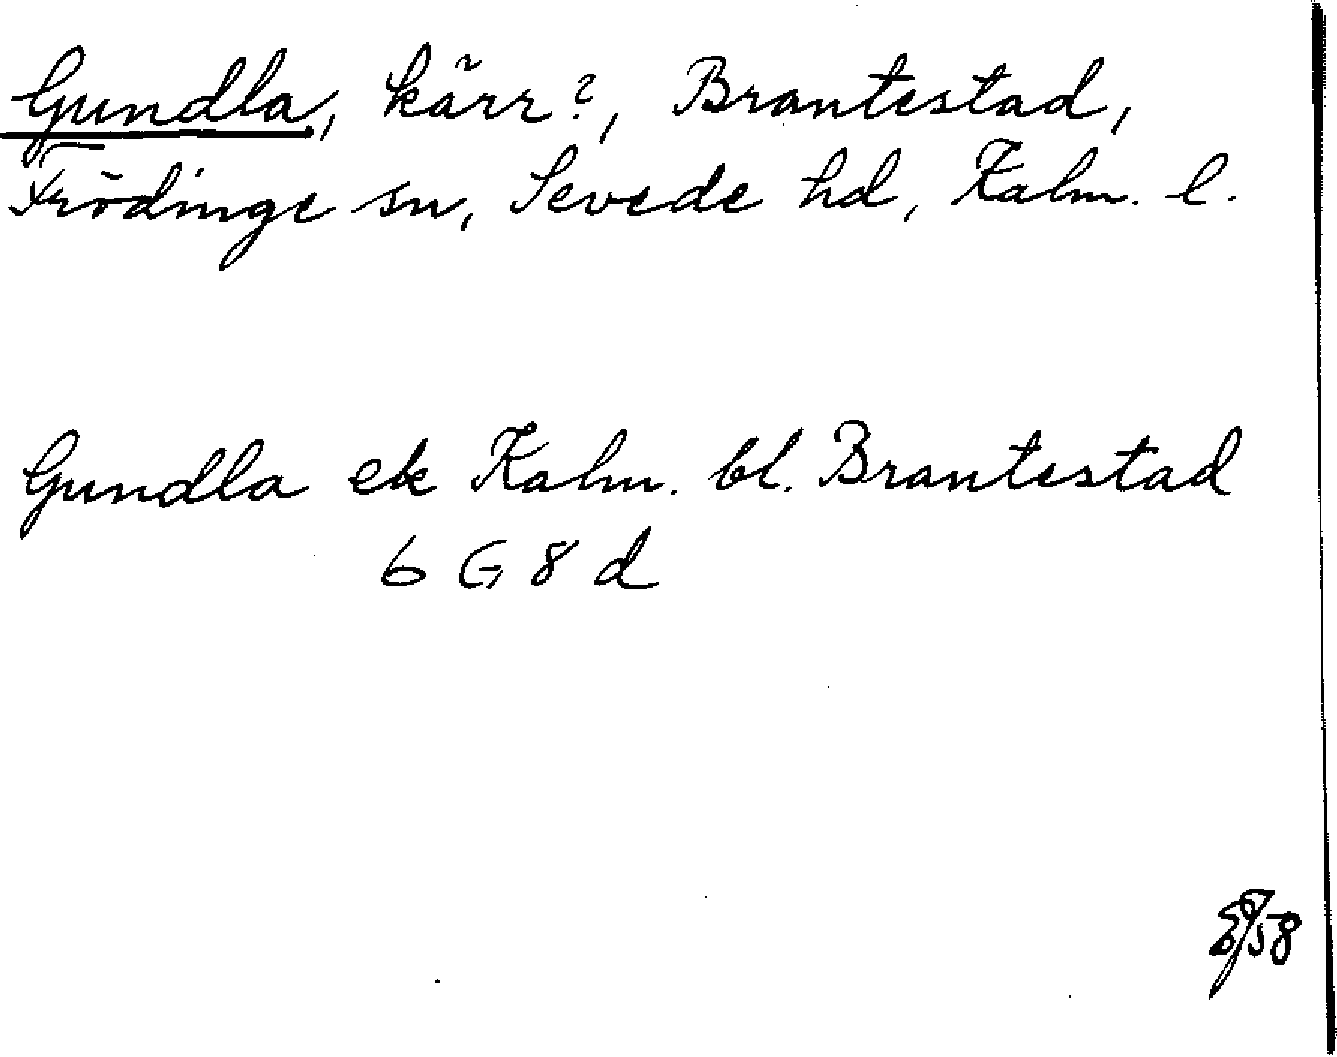 Gundla, kärr?, Brantestad,
Frödinge sn, Sevede hd, Kalm. l.
Gundla ek Kalm. bl. Brantestad
6 G 8 d
58